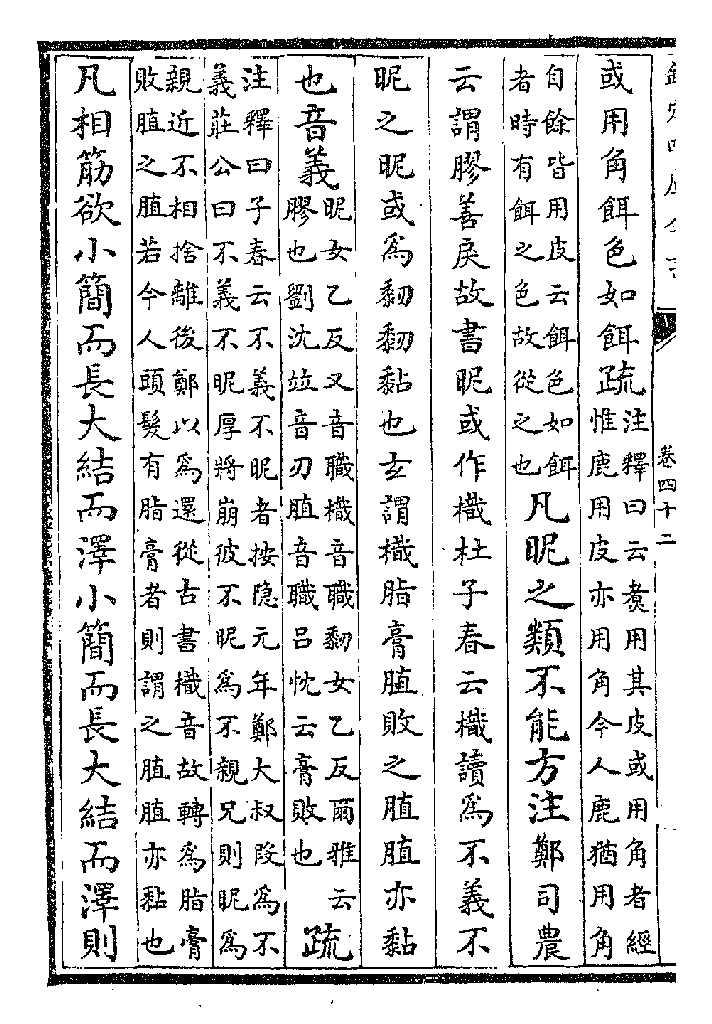 欽定四庫全書
卷四十二
或用角餌色如餌疏注釋曰云煑用其皮或用角者經
惟鹿用皮亦用角今人鹿猶用角
自餘皆用皮云餌色如餌
者時有餌之色故從之也凡昵之類不能方注鄭司農
云謂膠善戾故書昵或作樴杜子春云樴讀爲不義不
昵之昵或爲䵒䵒黏也玄謂樴脂膏䐈敗之䐈䐈亦黏
也音義昵女乙反又音職樴音職䵒女乙反爾雅云
膠也劉沈竝音刃䐈音職吕忱云膏敗也疏
注釋曰子春云不義不昵者按隐元年鄭大叔段爲不
義莊公曰不義不昵厚將崩彼不昵爲不親兄則昵爲
親近不相捨離後鄭以爲還從古書樴音故轉爲脂膏
敗䐈之䐈若今人頭髮有脂膏者則謂之䐈䐈亦黏也
凡相筋欲小簡而長大結而澤小簡而長大結而澤則